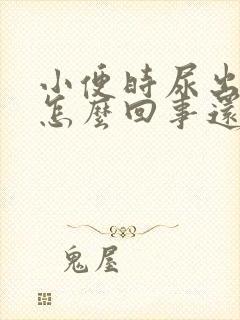 小便時尿出
怎麼回事還
鬼屋